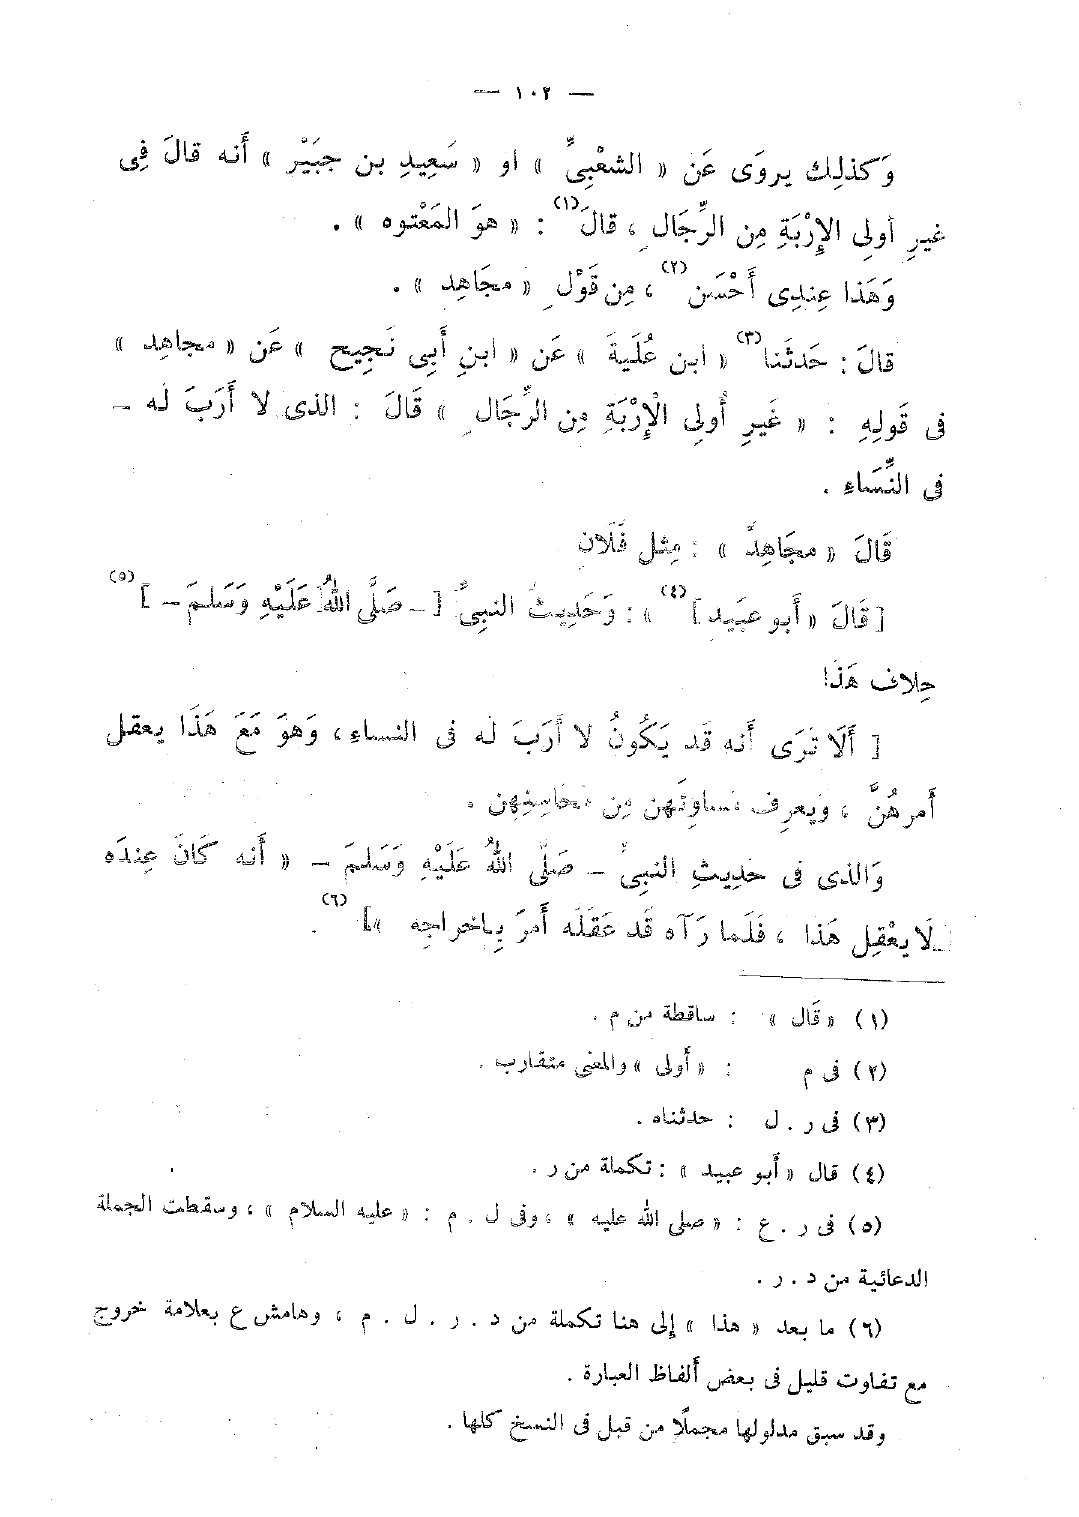 — ١٠٢ —
وَكذلِك يروَى عَن « الشعْبِىِّ » او « سَعِيدِ بن جبَيْر » أَنه قالَ فِى
غيرِ أولِى الإِرْبَةِ مِن الرِّجَالِ ، قالَ (١) : « هوَ المَعْتوه » .
وَهَذا عِندِى أَحْسَن (٢) ، مِن قَوْلِ « مجَاهِد » .
قالَ : حَدثَنا (٣) « ابن عُلَيةَ » عَن « ابنِ أَبِى نَجِيح » عَن « مجاهِد »
فى قَولِهِ : « غَيرِ أُولِى الْإِرْبَةِ مِن الرِّجَالِ » قَالَ : الذى لا أَرَبَ لَه –
فى النِّسَاءِ .
قَالَ « مجَاهِدٌ » : مِثل فَلَان
[ قَالَ « أَبو عبَيد ] (٤) » : وَحَدِيث النبِىِّ [ – صَلَّى اللهُ عَلَيْهِ وَسَلمَ – ] (٥)
خِلاف هَذَا
[ أَلَا تَرَى أَنه قَد يَكُونُ لا أَرَبَ لَه فى النساءِ ، وَهوَ مَعَ هَذَا يعقل
أَمرهُنَّ ، وَيعرِف مَساوِئَهن مِن مَحَاسِنِهِن .
وَالذى فى حَدِيثِ النبِىِّ – صَلَّى اللهُ عَلَيْهِ وَسَلمَ – « أَنه كَانَ عِندَه
لَا يعْقِل هَذا ، فَلَما رَآه قَد عَقَلَه أَمرَ بِاخراجِه » ] (٦) .
(١) « قَال » : ساقطة من م .
(٢) فى م : « أَولى » والمعنى متقارب .
(٣) فى ر . ل : حدثناه .
(٤) قال « أَبو عبيد » : تكملة من ر .
(٥) فى ر . ع : « صلى الله عليه » ، وفى ل . م : « عليه السلام » ، وسقطت الجملة
الدعائية من د . ر .
(٦) ما بعد « هذا » إلى هنا تكملة من د . ر . ل . م ، وهامش ع بعلامة خروج
مع تفاوت قليل فى بعض أَلفاظ العبارة .
وقد سبق مدلولها مجملًا من قبل فى النسخ كلها .